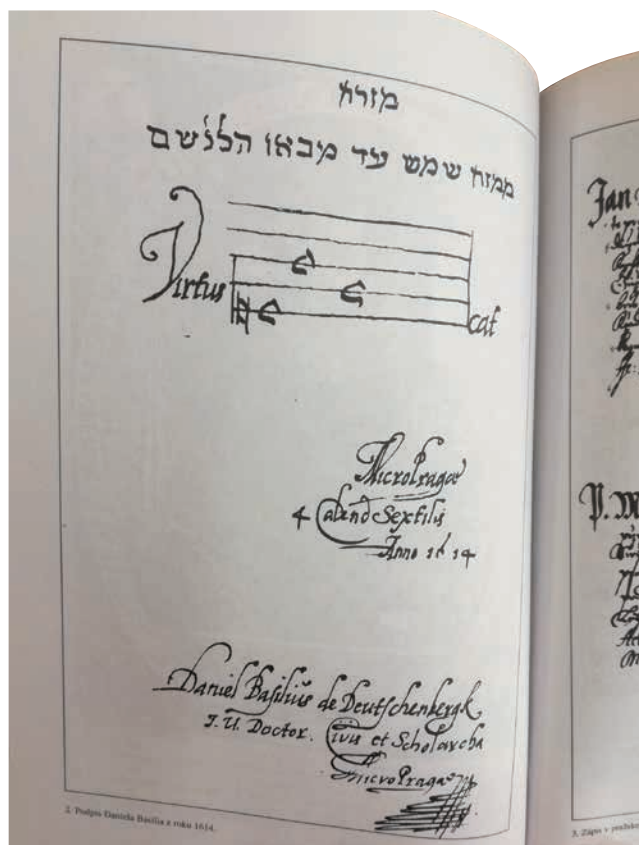 מזרח
ממזח שמש עד מבאו הללושם
Virtus
cat
MicroPragae
4 Calend Sextilis
Anno 1614
Daniel Basilius de Deutschenbergk
J. U. Doctor. Civis et Scholarcha
MicroPragae
2. Podpis Daniela Basilia z roku 1614.
Jan
P. M
3. Zápis v pražské